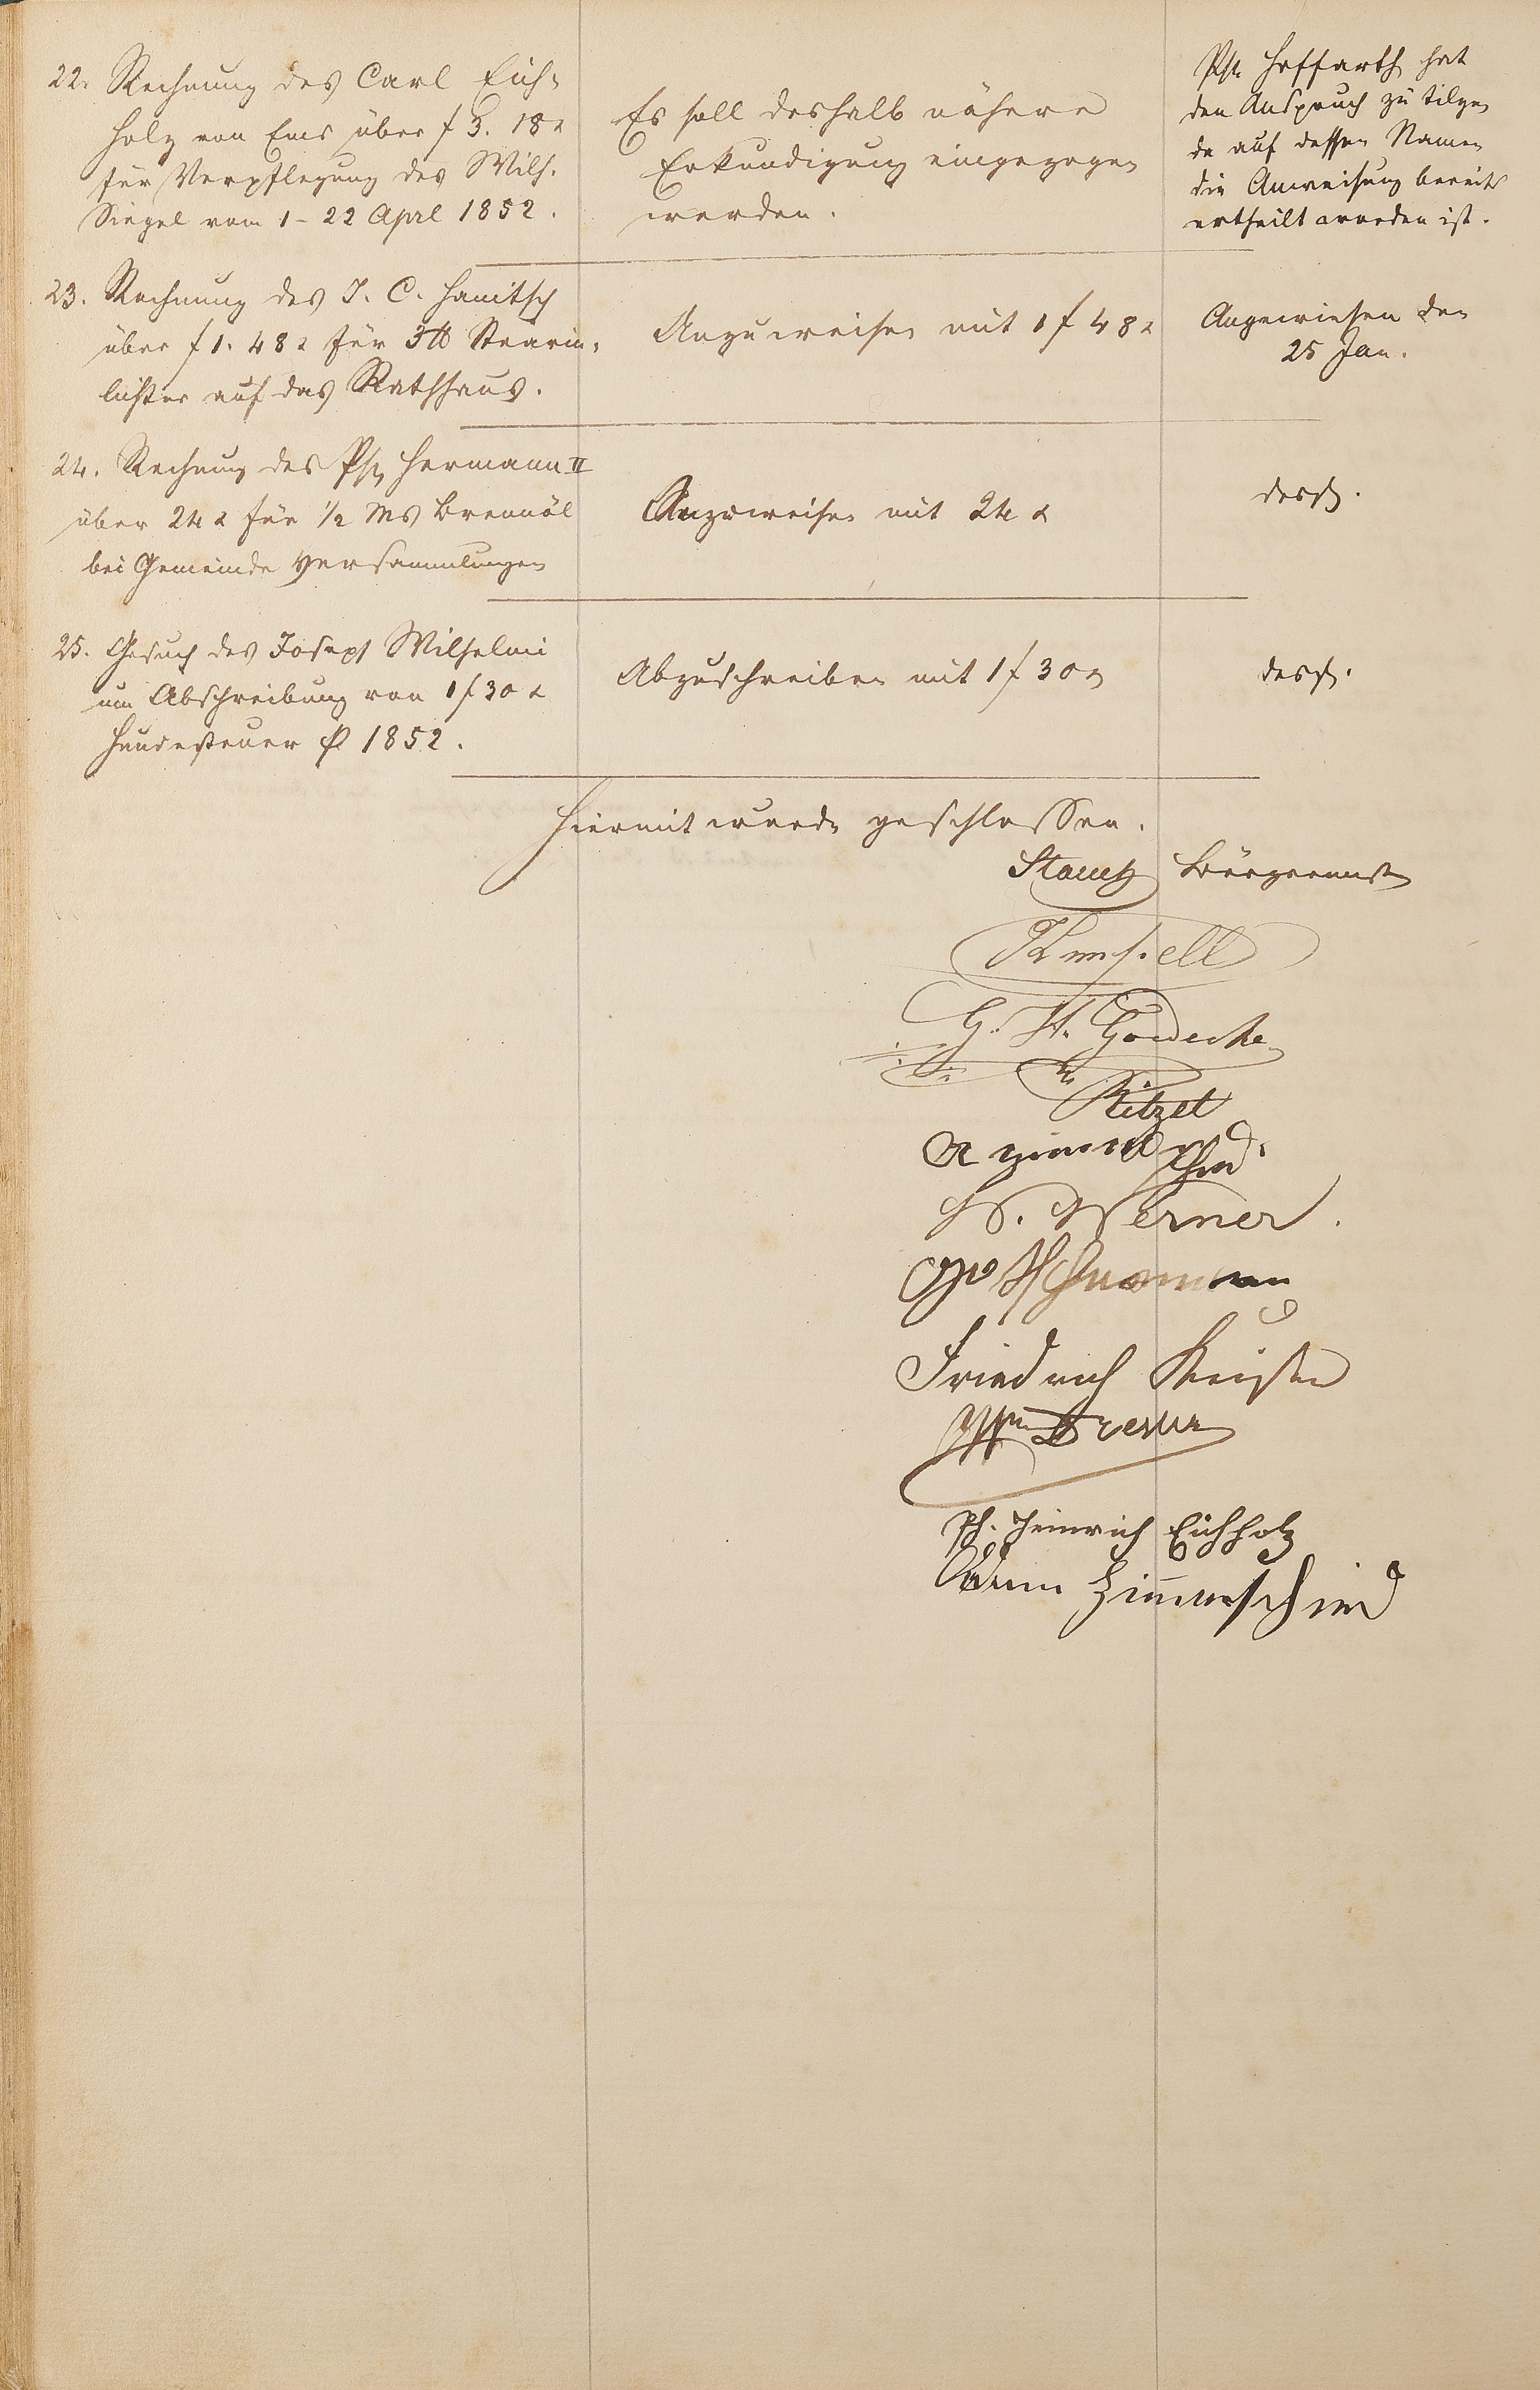 22. Rechnung des Carl Eich-
holz von Ems über f 3. 18 x
für Verpflegung des Wilh.
Siegel vom 1 - 22 Aprl 1852.
Es soll deshalb nähere
Erkundigung eingezogen
werden.
Ph. Hoffarth hat
den Anspruch zu tilgen
da auf dessen Namen
die Anweisung bereits
ertheilt worden ist.
23. Rechnung des J. C. Hanitsch
über f 1. 48 x für 3 ℔ Stearin-
lichter auf das Rathhaus.
Anzuweisen mit 1 f 48 x
Angewiesen den
25 Jan.
24. Rechnung des Ph. Hermann II
über 24 x für ½ Ms Brennöl
bei Gemeinde Versammlungen
Anzuweisen mit 24 x
desgl.
25. Gesuch des Joseph Wilhelmi
um Abschreibung von 1 f 30 x
Hundesteuer p 1852.
Abzuschreiben mit 1 f 30 x
desgl.
Hiermit wurde geschlossen.
Bürgermstr
G. H. Goedecke
Ritzel
W. Werner.
Friedrich
Ph. Heinrich Eichholz
Adam Zimmerschied